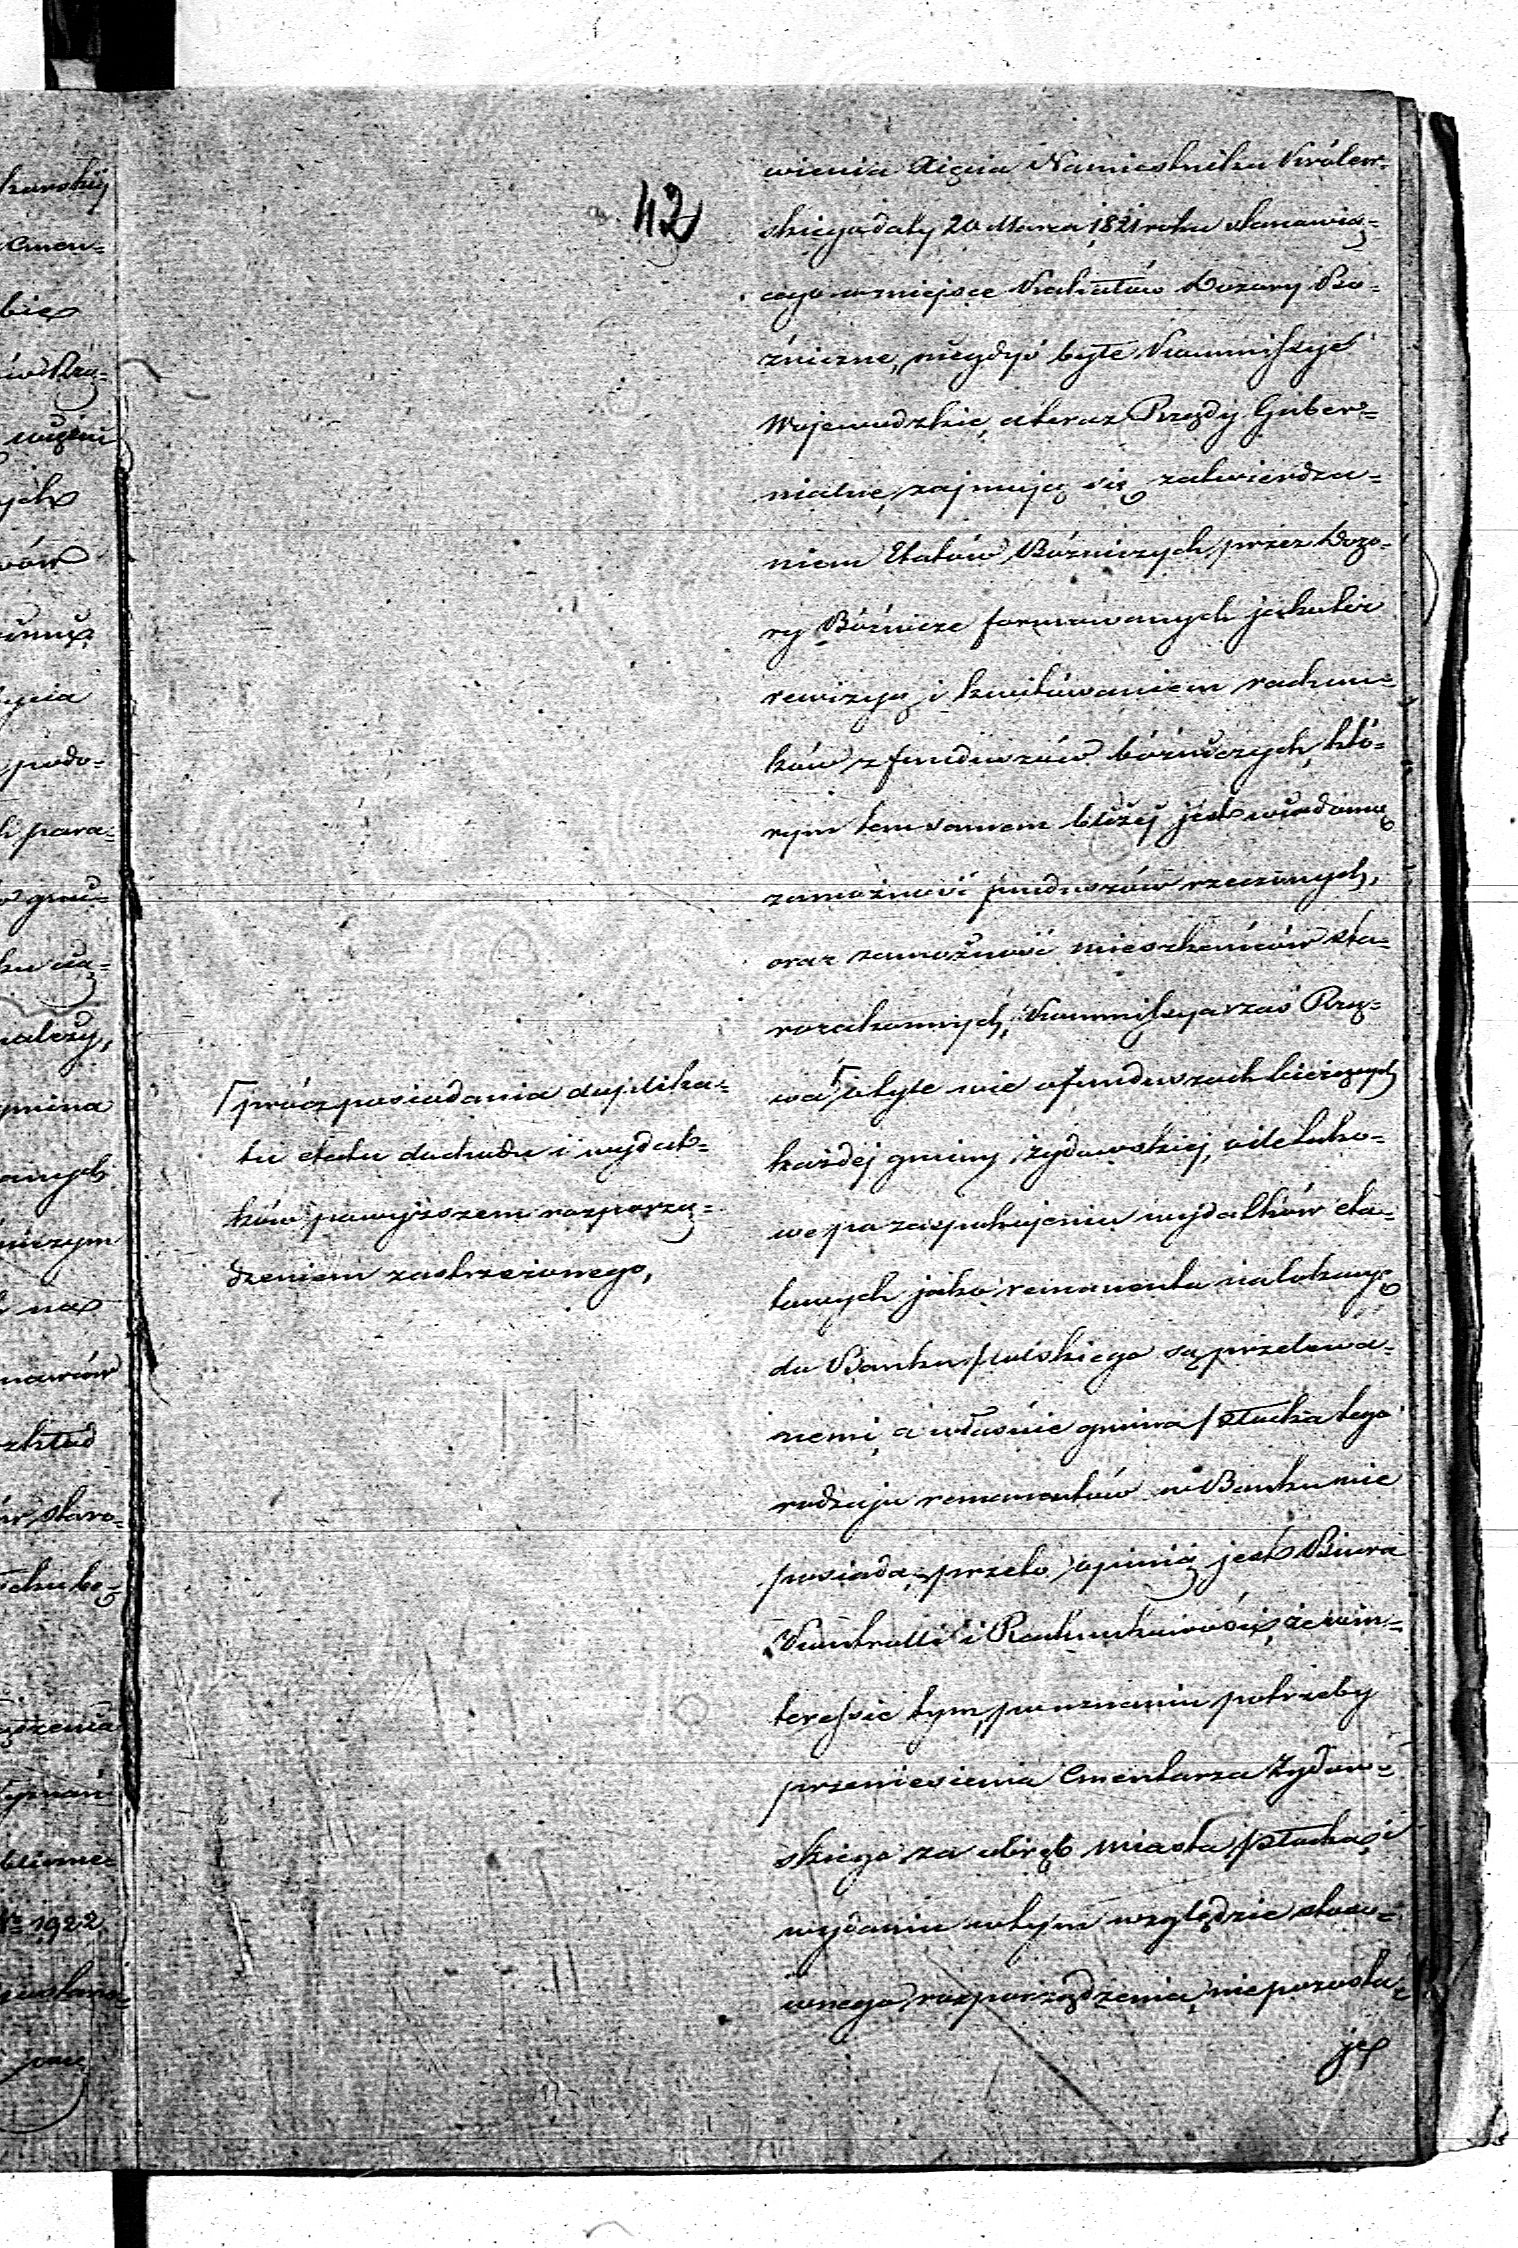 42
wienia Xięcia Namiestnika Królew-
skiego daty 20 Marca 1821 roku stanowią-
cego w miejsce Kahałów Dozory Bo-
źnicze, niegdyś byłe Kommissyje
Wojewodzkie, a teraz Rządy Guber-
nialne, zajmują się zatwierdza-
niem Etatów Bóżniczych, przez Dozo-
ry Bóżnicze formowanych jakoteż
rewizyą i kwitowaniem rachun-
ków z funduszów bóżniczych, któ-
rym tem samem bliżej jest wiadomą
zamożność funduszów rzeczonych,
oraz zamożność mieszkańców sta-
rozakonnych, Kommissya zaś Rzą-
wa Γ o tyle wie o funduszach bieżących
każdej gminy żydowskiej, o ile tako-
we po zaspokojeniu wydatków eta-
towych jako remanenta na lokacyę
do Banku Polskiego są przelewa-
nemi, a właśnie gmina Płocka tego
rodzaju remanentów w Banku nie
posiada, przeto opinią jest Biura
Kontrolli i Rachunkowości, że w in-
teressie tym, po uznaniu potrzeby
przeniesienia Cmentarza Żydow-
skiego za obręb miasta Płocka, i
wydaniu w tym względzie stoso-
wnego rozporządzenia, nie pozosta-
je
Γ prócz posiadania duplika-
tu etatu dochodu i wydat-
ków powyższem rozporzą-
dzeniem zastrzeżonego,